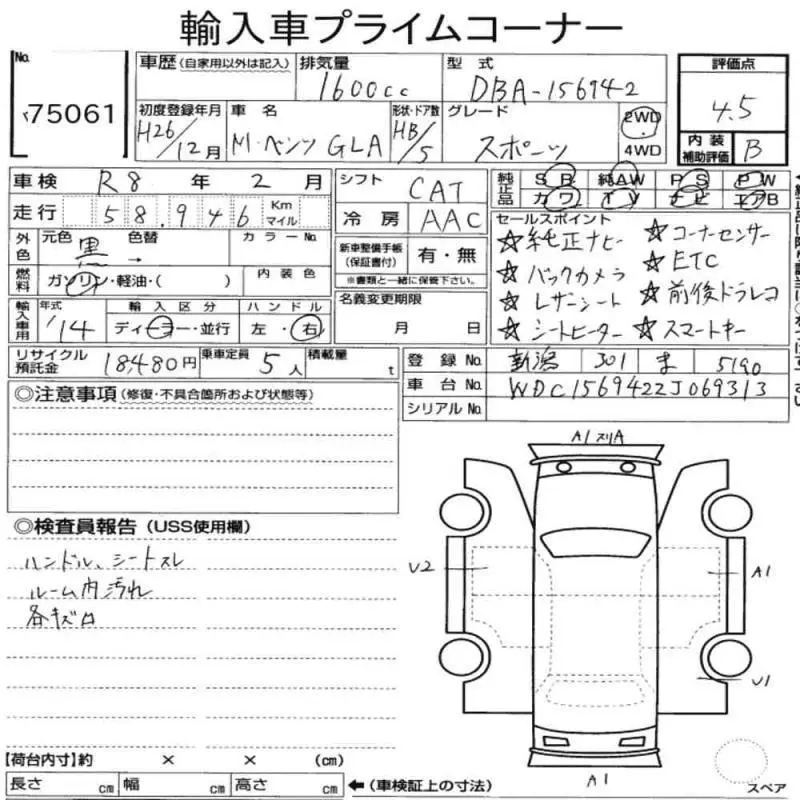 輸入車プライムコーナー
No. 75061
車歴 (自家用以外は記入) 排気量 1600cc 型式 DBA-156942 評価点 4.5
初度登録年月 H26/12月 車名 M・ベンツ GLA 形状・ドア数 HB/5 グレード スポーツ 2WD・4WD 内装補助評価 B
車検 R8年2月 シフト CAT 純正品 SR 純AW PS PW
カワ TV ナビ エアB
走行 58,946 Km マイル 冷房 AAC
外色 元色 黒 色替 → カラーNo. 新車整備手帳(保証書付) 有・無
※書類と一緒に保管下さい。
燃料 ガソリン・軽油・( ) 内装色 名義変更期限 月 日
輸入車用 年式 '14 輸入区分 ディーラー・並行 ハンドル 左・右
セールスポイント
☆純正ナビ ☆コーナーセンサー
☆バックカメラ ☆ETC
☆レザーシート ☆前後ドラレコ
☆シートヒーター ☆スマートキー
リサイクル預託金 18,480円 乗車定員 5人 積載量 t
登録No. 新潟 301 ま 5190
車台No. WDC1569422J069313
シリアルNo.
◎注意事項 (修復・不具合箇所および状態等)
◎検査員報告 (USS使用欄)
ハンドル、シートスレ
ルーム内汚れ
各キズ有
A1 スリA
U2
A1
U1
A1
スペア
【荷台内寸】約 × × (cm)
長さ cm 幅 cm 高さ cm ←(車検証上の寸法)